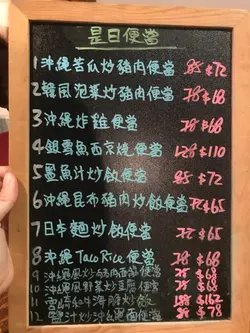 是日便當
1 沖繩苦瓜炒豬肉便當 88 $72
2 韓風泡菜炒豬肉便當 78 $68
3 沖繩炸雞便當 78 $68
4 銀雪魚西京燒便當 128 $110
5 墨魚汁炒飯便當 88 $72
6 沖繩昆布豬肉炒飯便當 78 $65
7 日本麵炒飯便當 78 $65
8 沖繩 Taco Rice 便當 78 $68
9 沖繩風炒豬肉 便當 78 $68
10 沖繩風野菜炒豆腐便當 78 $68
11 海膽炒飯 $162
12 汁炒沖繩 便當 $78